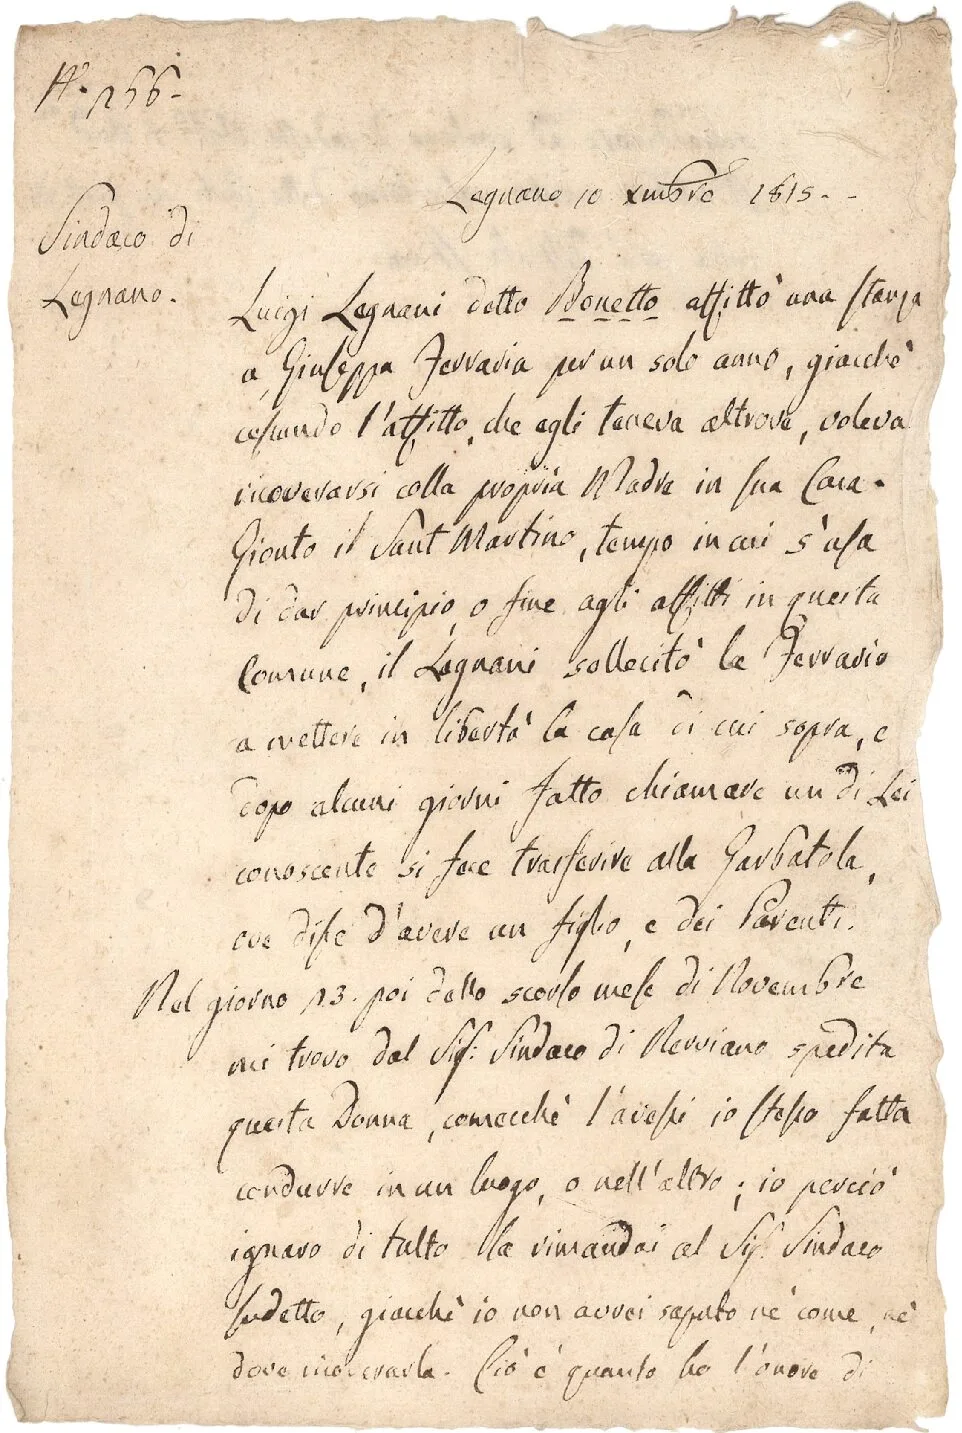 N.° 256.
Legnano 10 Xmbre 1815.
Sindaco di
Legnano.
Luigi Legnani detto Bonetto affittò una stanza
a Giuseppa Ferraria per un solo anno, giacchè
cessando l'affitto, che egli teneva altrove, voleva
ricoverarsi colla propria Madre in sua Casa.
Gionto il Sant Martino, tempo in cui s'usa
di dar principio, o fine agli affitti in questa
Comune, il Legnani sollecitò la Ferrario
a mettere in libertà la casa di cui sopra, e
dopo alcuni giorni fatto chiamare un di Lei
conoscente si fece trasferire alla Garbatola,
ove disse d'avere un figlio, e dei Parenti.
Nel giorno 23. poi dello scorso mese di Novembre
mi trovo dal Sig.r Sindaco di Nerviano spedita
questa Donna, comecchè l'avessi io stesso fatta
condurre in un luogo, o nell'altro; io perciò
ignaro di tutto la rimandai al Sig.r Sindaco
sudetto, giacchè io non avrei saputo nè come, nè
dove ricoverarla. Ciò è quanto ho l'onore di